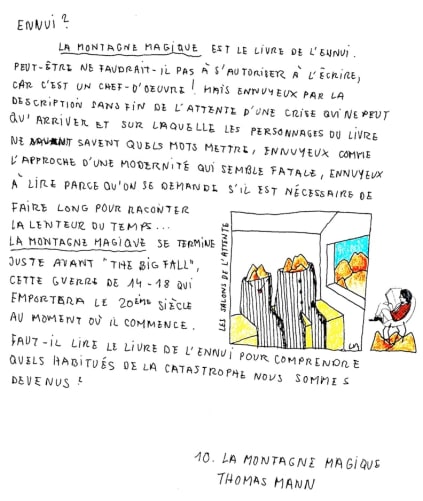 ENNUI ?
LA MONTAGNE MAGIQUE EST LE LIVRE DE L'ENNUI.
PEUT-ÊTRE NE FAUDRAIT-IL PAS À S'AUTORISER À L'ÉCRIRE,
CAR C'EST UN CHEF-D'OEUVRE ! MAIS ENNUYEUX PAR LA
DESCRIPTION SANS FIN DE L'ATTENTE D'UNE CRISE QUI NE PEUT
QU'ARRIVER ET SUR LAQUELLE LES PERSONNAGES DU LIVRE
NE SAVENT QUELS MOTS METTRE, ENNUYEUX COMME
L'APPROCHE D'UNE MODERNITÉ QUI SEMBLE FATALE, ENNUYEUX
À LIRE PARCE QU'ON SE DEMANDE S'IL EST NÉCESSAIRE DE
FAIRE LONG POUR RACONTER
LA LENTEUR DU TEMPS...
LA MONTAGNE MAGIQUE SE TERMINE
JUSTE AVANT "THE BIG FALL",
CETTE GUERRE DE 14-18 QUI
EMPORTERA LE 20ÈME SIÈCLE
AU MOMENT OÙ IL COMMENCE.
FAUT-IL LIRE LE LIVRE DE L'ENNUI POUR COMPRENDRE
QUELS HABITUÉS DE LA CATASTROPHE NOUS SOMMES
DEVENUS ?
LES SALONS DE L'ATTENTE
LA
10. LA MONTAGNE MAGIQUE
THOMAS MANN